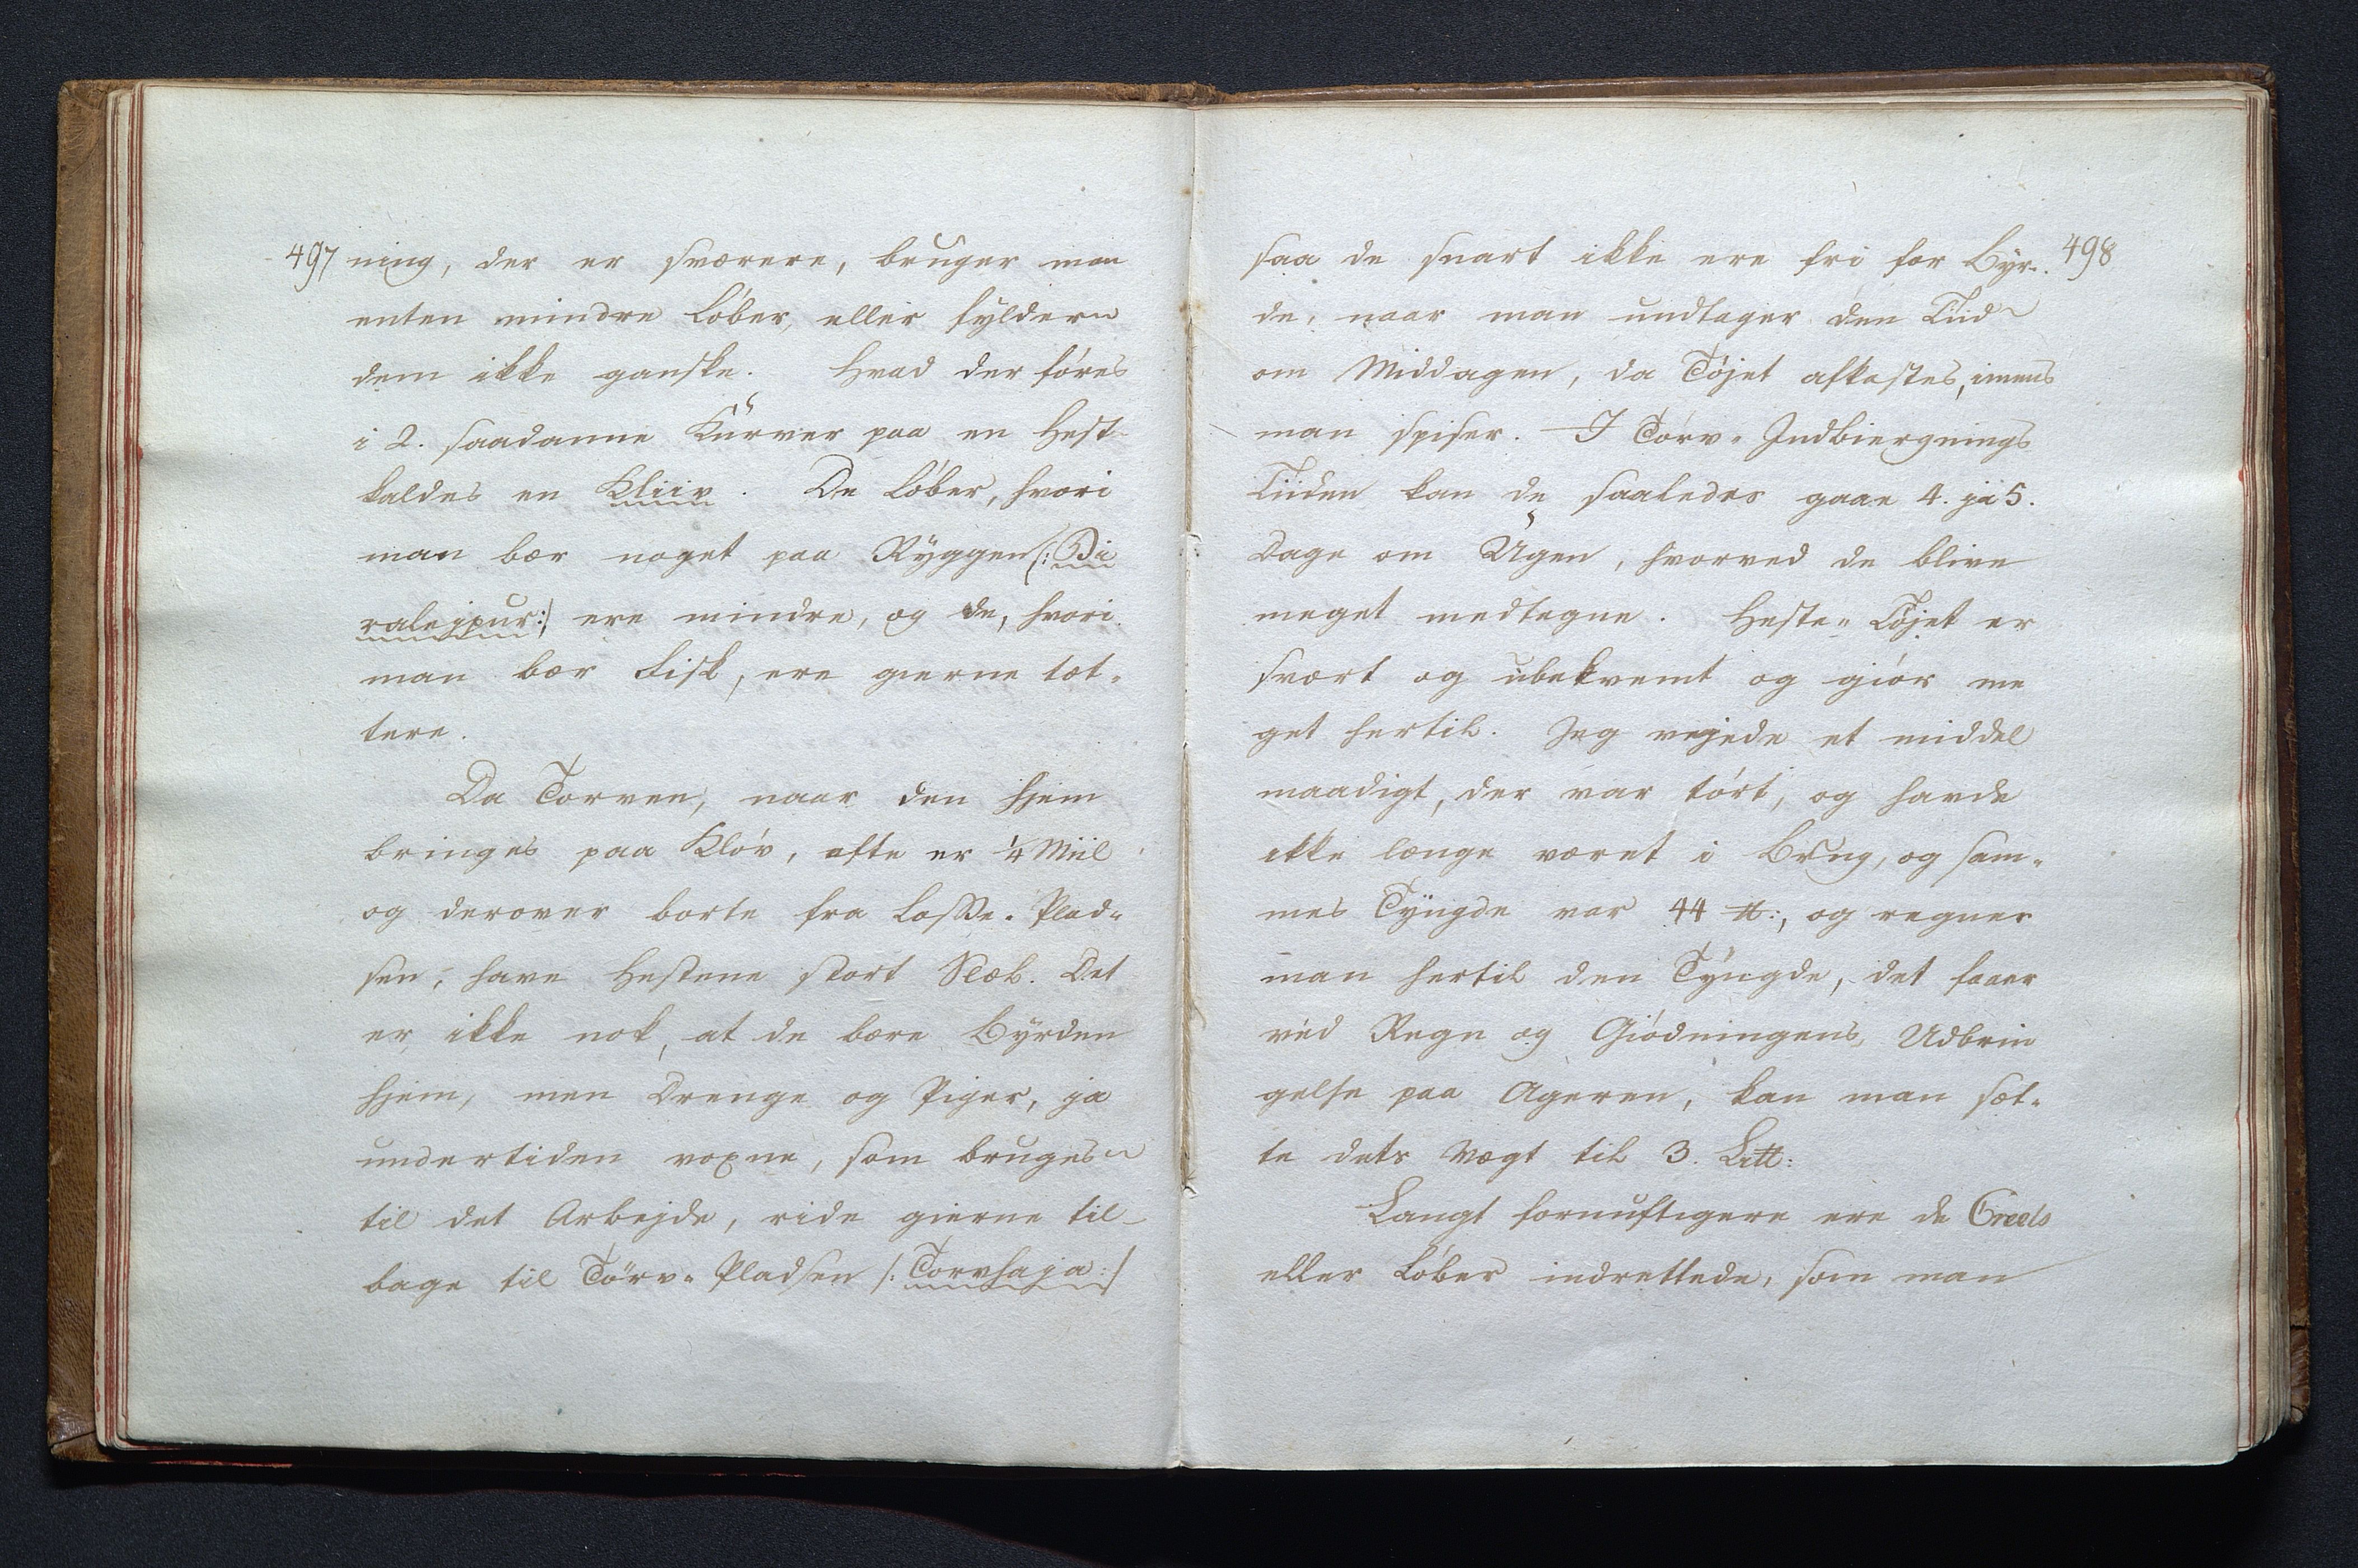 497
ning, der er sværere, bruger man
enten mindre Løber, eller fylder
dem ikke ganske. Hvad der føres
i 2. saadanne Kurver paa en Hest
kaldes en Kliiv. De Løber, hvori
man bær noget paa Ryggen /: Bi
ralejpur :/ ere mindre, og de, hvori
man bær Fisk, ere gierne tæt-
tere.
Da Torven, naar den hjem
bringes paa Kløv, ofte er 1/4 Miil
og derover borte fra Losse-Plad-
sen, have Hestene stort Slæb. Det
er ikke nok, at de bære Byrden
hjem, men Drenge og Piger, ja
undertiden voxne, som bruges
til det Arbejde, ride gierne til-
bage til Törv-Pladsen /: Torvhaja :/
498
saa de snart ikke ere fri for Byr-
de, naar man undtager den Tiid
om Middagen, da Tøjet afkastes, imens
man spiser. I Törv-Indbiergnings
Tiiden kan de saaledes gaae 4. ja 5.
Dage om Ugen, hvorved de blive
meget medtagne. Heste-Tøjet er
svært og ubekvemt og giør me
get hertil. Jeg vejede et middel
maadigt, der var tørt, og havde
ikke længe været i Brug, og sam-
mes Tyngde var 44 ℔:, og regner
man hertil den Tyngde, det faaer
ved Regn og Giødningens Udbrin
gelse paa Ageren, kan man sæt-
te dets Vægt til 3. L℔:
Langt fornuftigere ere de Creels
eller Løber indrettede, som man